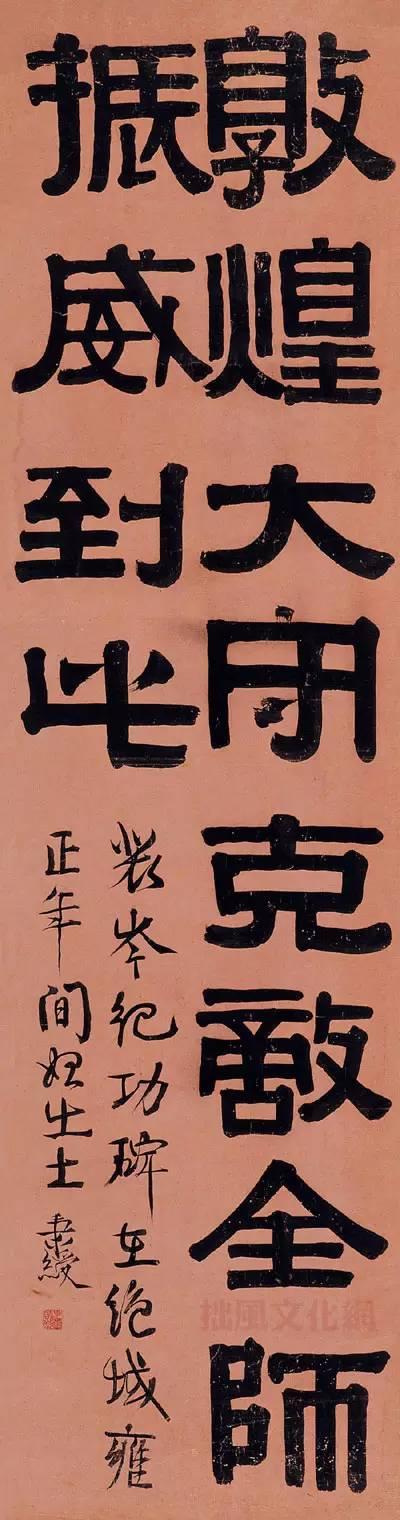 敦煌大守克敵全師
振威到此
裴岑紀功碑在絕域雍
正年間始出土 秉綬
拙風文化網